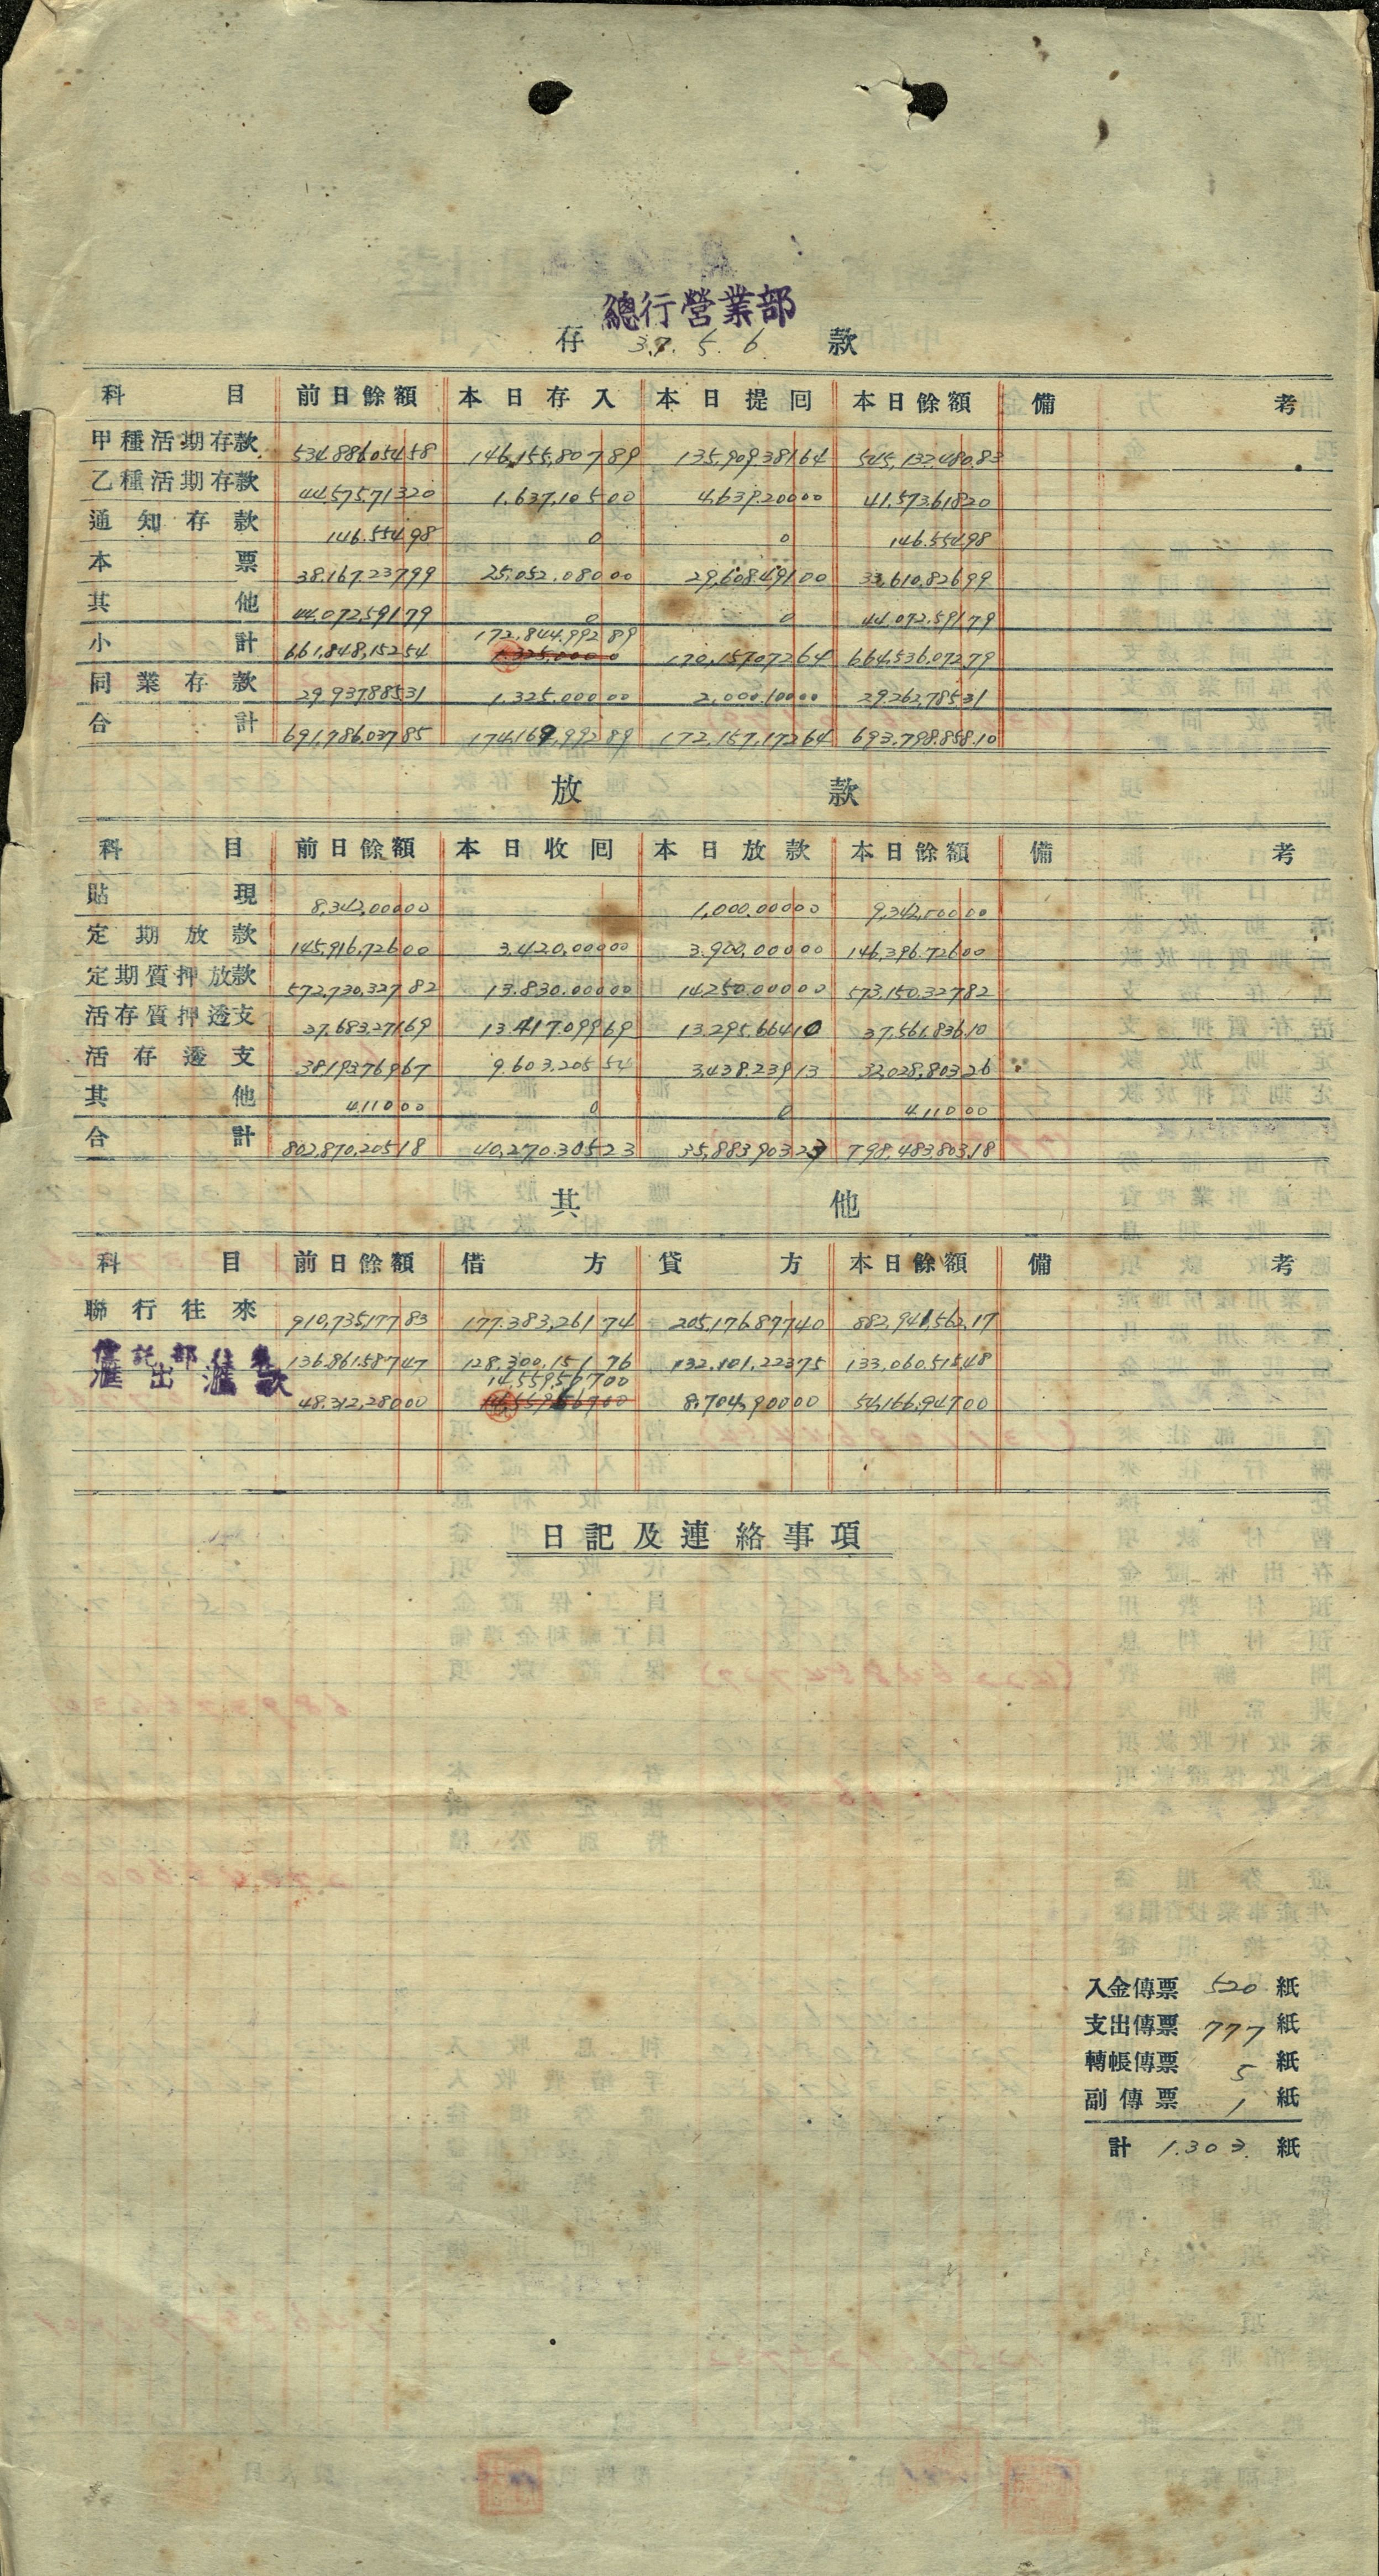 總行營業部
存 37. 5. 6 款
科目 前日餘額 本日存入 本日提囘 本日餘額 備考
甲種活期存款 534,886,054 58 146,155,807 89 135,909,381 64 545,132,480 83
乙種活期存款 44,575,713 20 1,637,105 00 4,639,200 00 41,573,618 20
通知存款 146,554 98 0 0 146,554 98
本票 38,167,237 99 25,052,080 00 29,608,491 00 33,610,826 99
其他 44,072,591 79 0 0 44,072,591 79
172,844,992 89
小計 661,848,152 54 1,325,000 0 170,157,072 64 664,536,072 79
同業存款 29,937,885 31 1,325,000 00 2,000,100 00 29,262,785 31
合計 691,786,037 85 174,169,992 89 172,157,172 64 693,798,858.10
放款
科目 前日餘額 本日收囘 本日放款 本日餘額 備考
貼現 8,342,000 00 1,000,000 00 9,342,000 00
定期放款 145,916,726 00 3,420,000 00 3,900,000 00 146,396,726 00
定期質押放款 572,730,327 82 13,830,000 00 14,250,000 00 573,150,327 82
活存質押透支 37,683,271 69 13,417,099 69 13,295,664 10 37,561,836 10
活存透支 38,193,769 67 9,603,205 54 3,438,239 13 32,028,803 26
其他 4,110 00 0 0 4,110 00
合計 802,870,205 18 40,270,305 23 35,883,903 23 798,483,803 18
其他
科目 前日餘額 借方 貸方 本日餘額 備考
聯行往來 910,735,177 83 177,383,261 74 205,176,877 40 882,941,562 17
信託部往來 136,861,587 47 128,300,151 76 132,101,223 75 133,060,515 48
14,559,567 00
滙出滙款 48,312,280 00 14,559,567 00 8,704,900 00 54,166,947 00
日記及連絡事項
入金傳票 520 紙
支出傳票 777 紙
轉帳傳票 5 紙
副傳票 1 紙
計 1.303. 紙